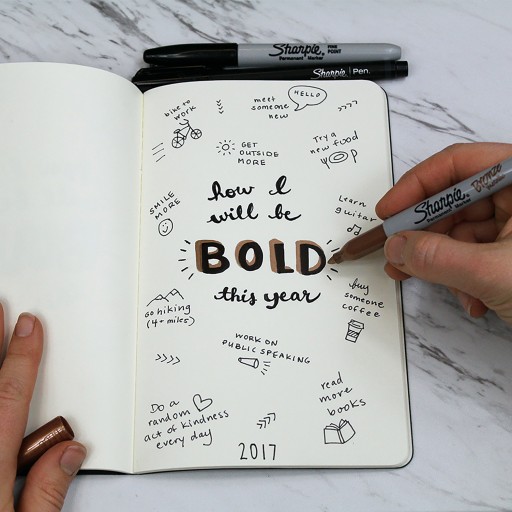 Sharpie. FINE POINT
Permanent Marker
Sharpie | Pen.
bike to
work
meet
someone
new
HELLO
GET
OUTSIDE
MORE
Try a
new food
SMILE
MORE
how I
will be
BOLD
this year
Learn
guitar
Sharpie. Bronze
go hiking
(4+ miles)
buy
someone
coffee
WORK ON
PUBLIC SPEAKING
read
more
books
Do a
random
act of kindness
every day
2017